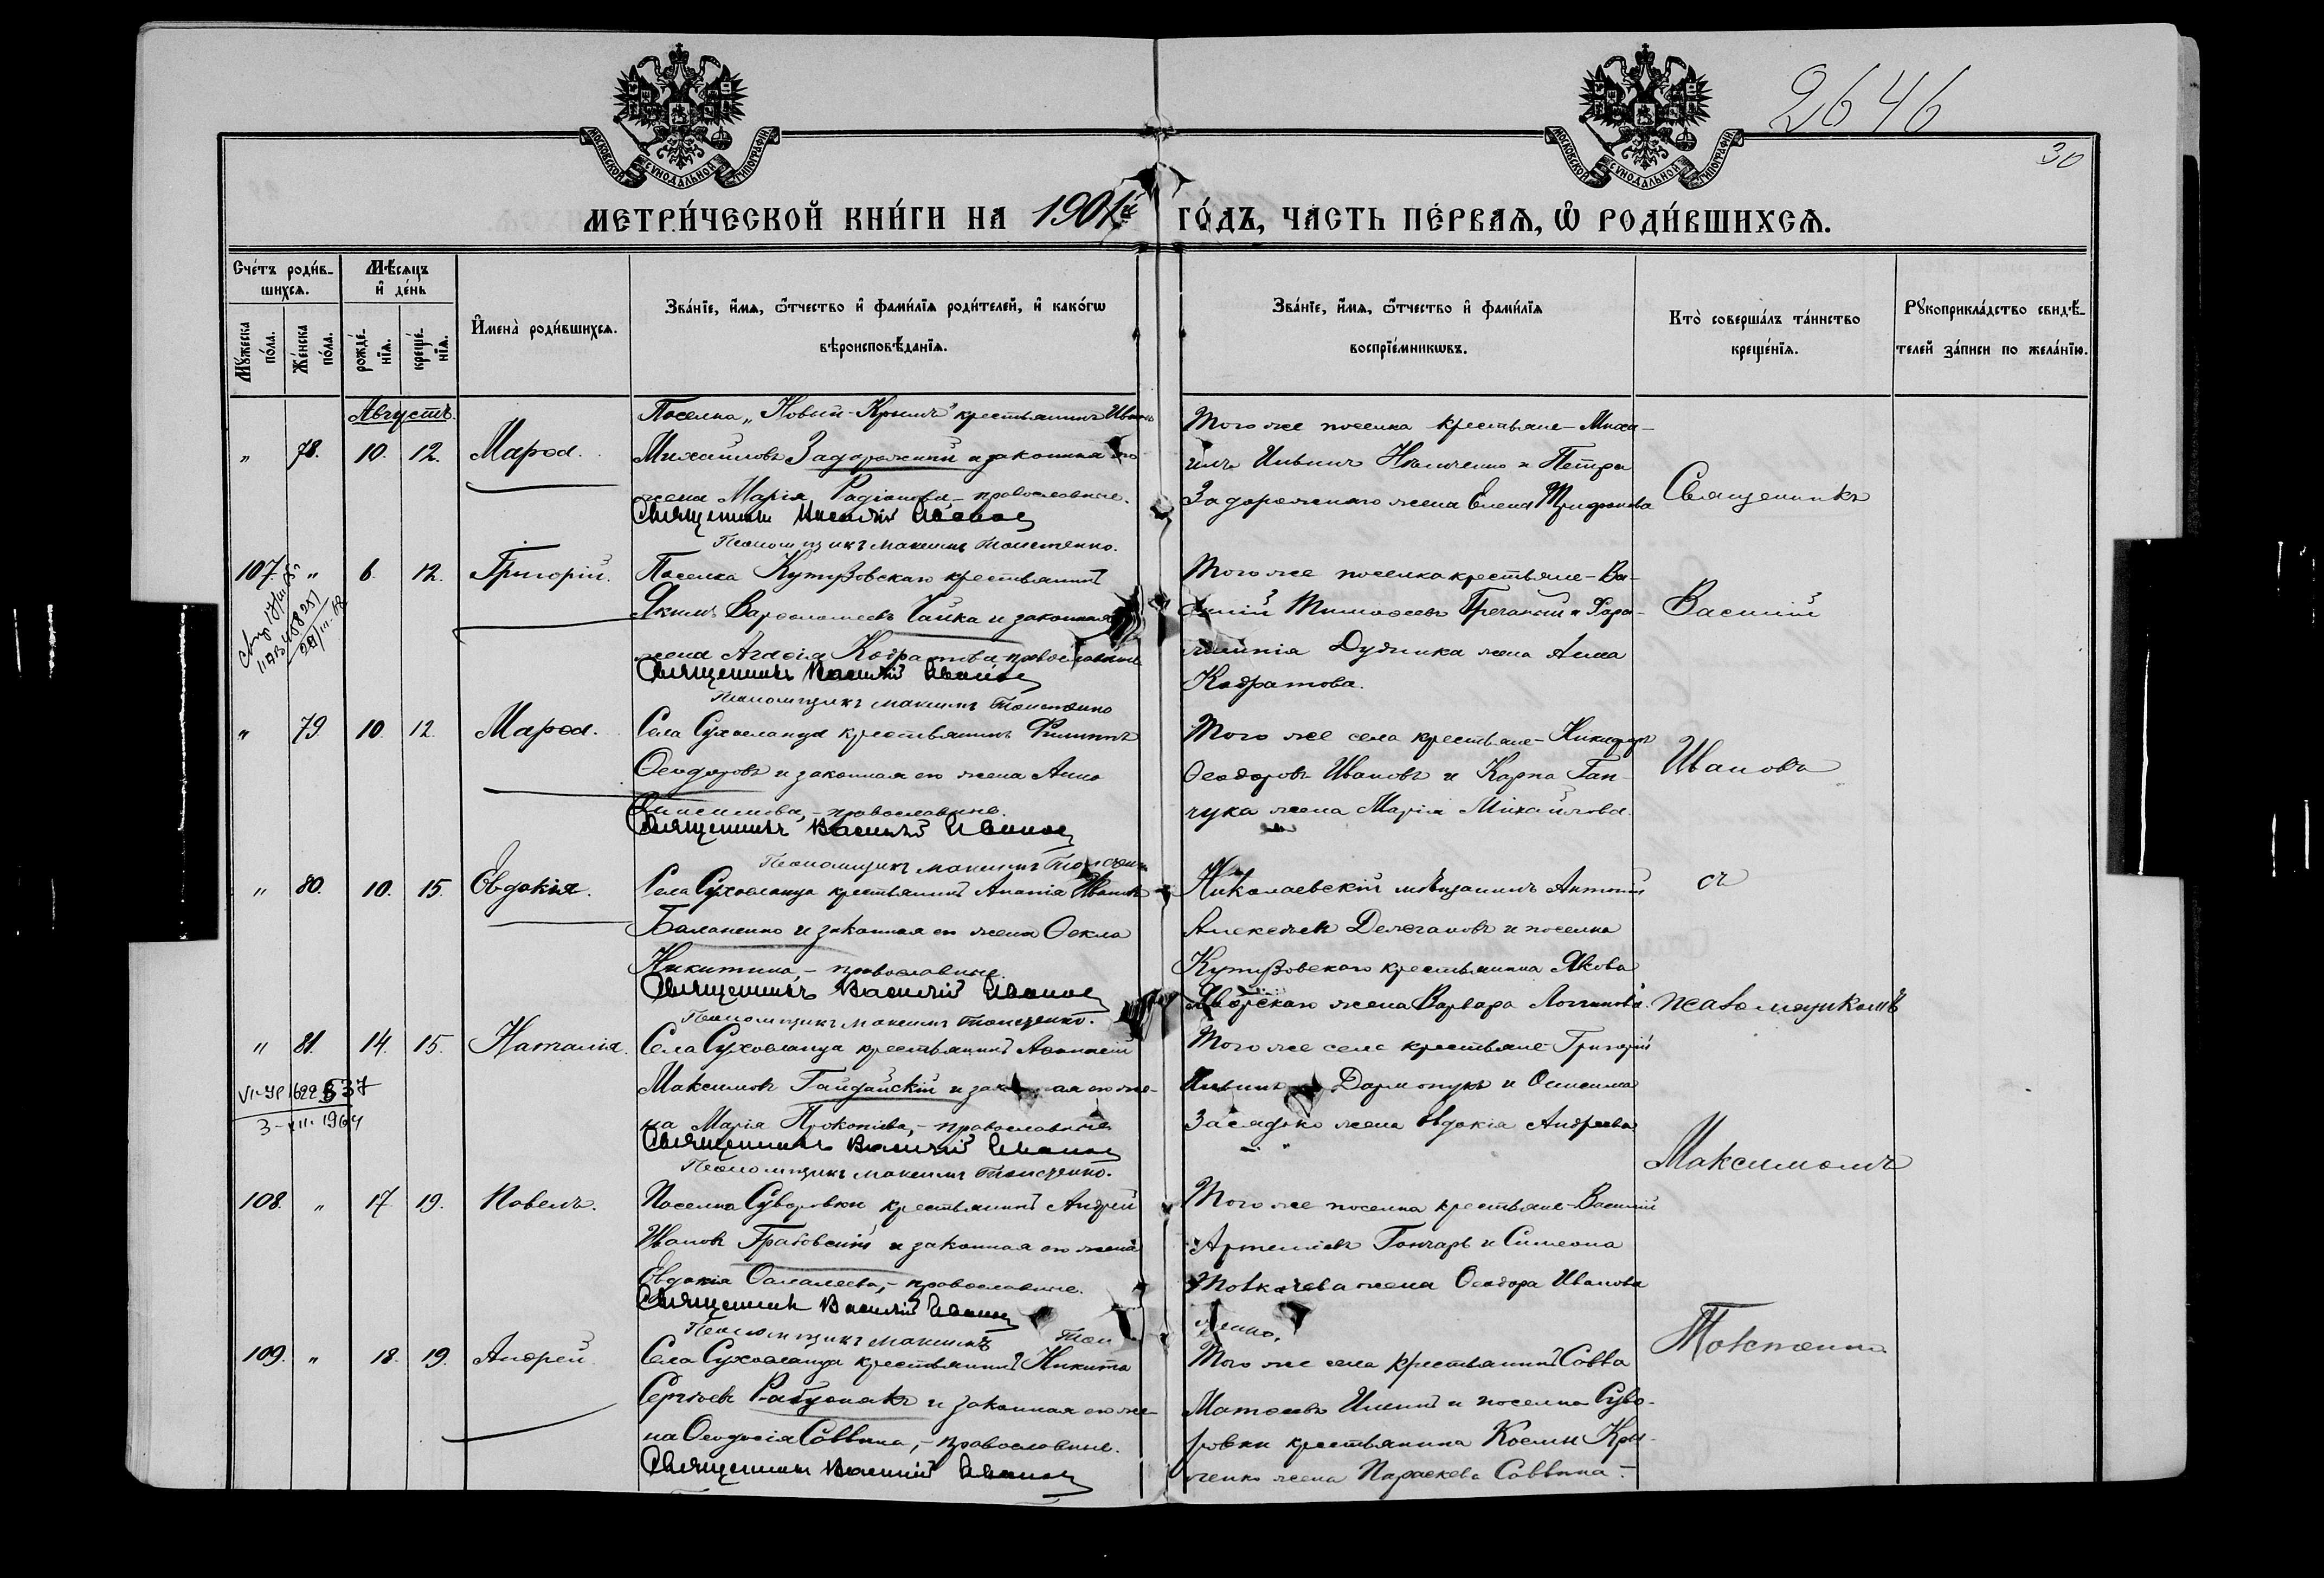 2646
30
МОСКОВСКОЙ СѴНОДАЛЬНОЙ ТИПОГРАФІИ
МОСКОВСКОЙ СѴНОДАЛЬНОЙ ТИПОГРАФІИ
МЕТРИ́ЧЕСКОЙ КНИ́ГИ НА 1901й ГО́ДЪ, ЧА́СТЬ ПЕ́РВАѦ, Ѡ РОДИ́ВШИХСѦ.
Сче́тъ роди́в-
шихсѧ.
Мꙋ́жеска по́ла.
Же́нска по́ла.
Мѣ́сѧцъ и҆ де́нь
рожде́-нїѧ.
креще́-нїѧ.
И҆мена̀ роди́вшихсѧ.
Зва́нїе, и҆́мѧ, ѻ҆́тчество и҆ фами́лїѧ роди́телей, и҆ како́гѡ
вѣроисповѣ́данїѧ.
Зва́нїе, и҆́мѧ, ѻ҆́тчество и҆ фами́лїѧ
воспрїе́мникѡвъ.
Кто̀ соверша́лъ та́инство
креще́нїѧ.
Рꙋкоприкла́дство свидѣ́-
телей за́писи по жела́нїю.
Августъ.
" 78. 10. 12. Марѳа.
Поселка „Новый-Крымъ" крестьянинъ Иванъ
Михайловъ Задорожный и законная его
жена Марія Радіонова, - православные.
Священникъ Василій Ивановъ
Псаломщикъ Максимъ Товстенко.
Того же поселка крестьяне - Миха-
илъ Ильинъ и Петра
Задорожнаго жена Елена Трифонова
107. " 6. 12. Григорій.
Поселка Кутузовскаго крестьянинъ
Якимъ Варѳоломеевъ Чайка и законная
жена Агаѳія Кодратова - православные
Священникъ Василій Ивановъ
Псаломщикъ Максимъ Товстенко
Того же поселка крестьяне - Ва-
силій Тимоѳеевъ Гречаный и Хара-
лампія Дудника жена Анна
Кодратова.
" 79. 10. 12. Марѳа.
Села Сухоеланца крестьянинъ Филиппъ
Ѳеодоровъ и законная его жена Анна
православные.
Священникъ Василій Ивановъ
Псаломщикъ Максимъ Товстенко
Того же села крестьяне - Никифоръ
Ѳеодоровъ Ивановъ и Карпа Ган-
чука жена Марія Михайлова.
" 80. 10. 15. Евдокія.
Села Сухоеланца крестьянинъ Ананія Ивановъ
Баланенко и законная его жена Ѳекла
Никитина, - православные.
Священникъ Василій Ивановъ
Псаломщикъ Максимъ Товстенко.
Николаевскій мѣщанинъ Антоній
Алексѣевъ и поселка
Кутузовскаго крестьянина Якова
Яворскаго жена Варвара Логгинова.
" 81. 14. 15. Наталія.
1964
Села Сухоеланца крестьянинъ Аѳанасій
Максимовъ Гайдайскій и законная его же-
на Марія Прокопіева, - православные
Священникъ Василій Ивановъ
Псаломщикъ Максимъ Товстенко.
Того же села крестьяне - Григорій
Ильинъ и Онисима
Засядько жена Евдокія Андреева
108. " 17. 19. Павелъ.
Поселка Суворовки крестьянинъ Андрей
Ивановъ Грабовскій и законная его жена
Евдокія православные.
Священникъ Василій Ивановъ
Псаломщикъ Максимъ Товстенко.
Того же поселка крестьяне - Василій
Артеміевъ Гончаръ и Симеона
Товкачева жена Ѳеодора Иванова
109. " 18. 19. Андрей
Села Сухоеланца крестьянинъ Никита
Сергѣевъ и законная его же-
на Ѳеодосія Саввина, - православные.
Священникъ Василій Ивановъ
Того же села крестьянинъ Савва
Матѳеевъ и поселка Суво-
ровки крестьянина Косьмы
жена Параскева Саввина.
Священникъ
Василій
Ивановъ
съ
псаломщикомъ
Максимомъ
Товстенко